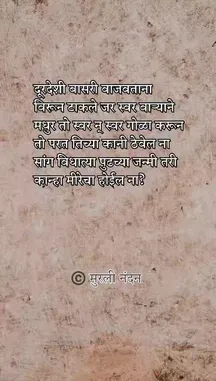 दूरदेशी बासरी वाजवताना
विरून टाकले जर स्वर वाऱ्याने
मधुर तो स्वर न् स्वर गोळा करून
तो परत तिच्या कानी ठेवेल ना
सांग विधात्या पुढच्या जन्मी तरी
कान्हा मीरेचा होईल ना?
© मुरली नंदन